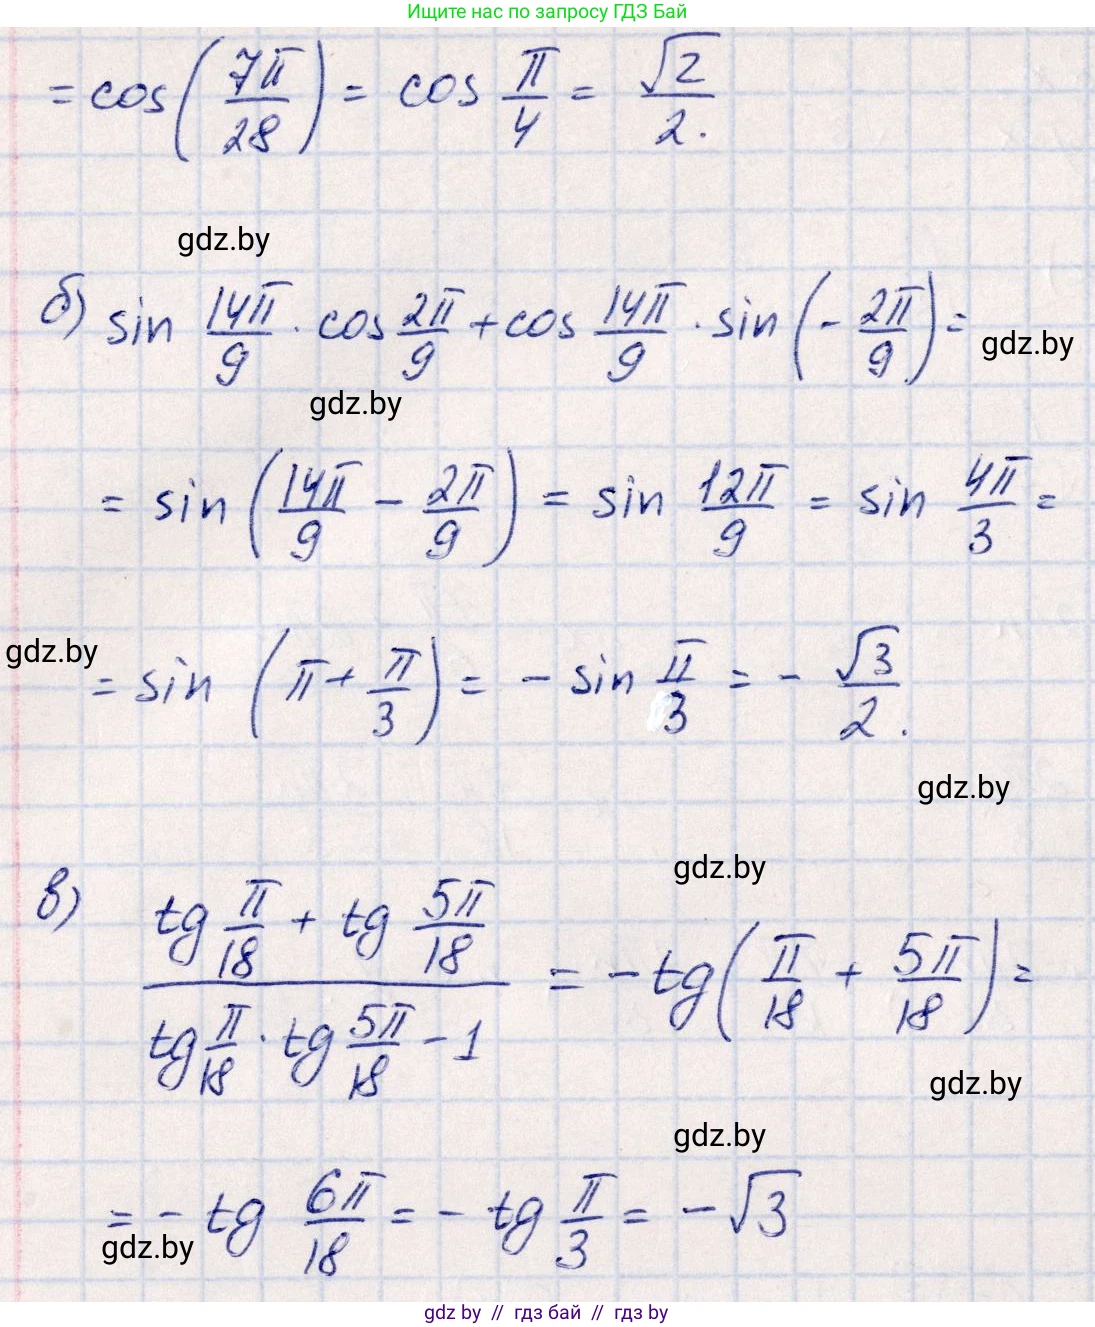 Ищите нас по запросу ГДЗ Бай
= cos(7π/28) = cos π/4 = √2/2.
gdz.by
б) sin 14π/9 · cos 2π/9 + cos 14π/9 · sin (- 2π/9) =
gdz.by
gdz.by
= sin (14π/9 - 2π/9) = sin 12π/9 = sin 4π/3 =
gdz.by
= sin (π + π/3) = - sin π/3 = - √3/2.
gdz.by
gdz.by
в) (tg π/18 + tg 5π/18)/(tg π/18 · tg 5π/18 - 1) = - tg(π/18 + 5π/18) =
gdz.by
gdz.by
= - tg 6π/18 = - tg π/3 = - √3
gdz.by
gdz by // гдз бай // гдз by